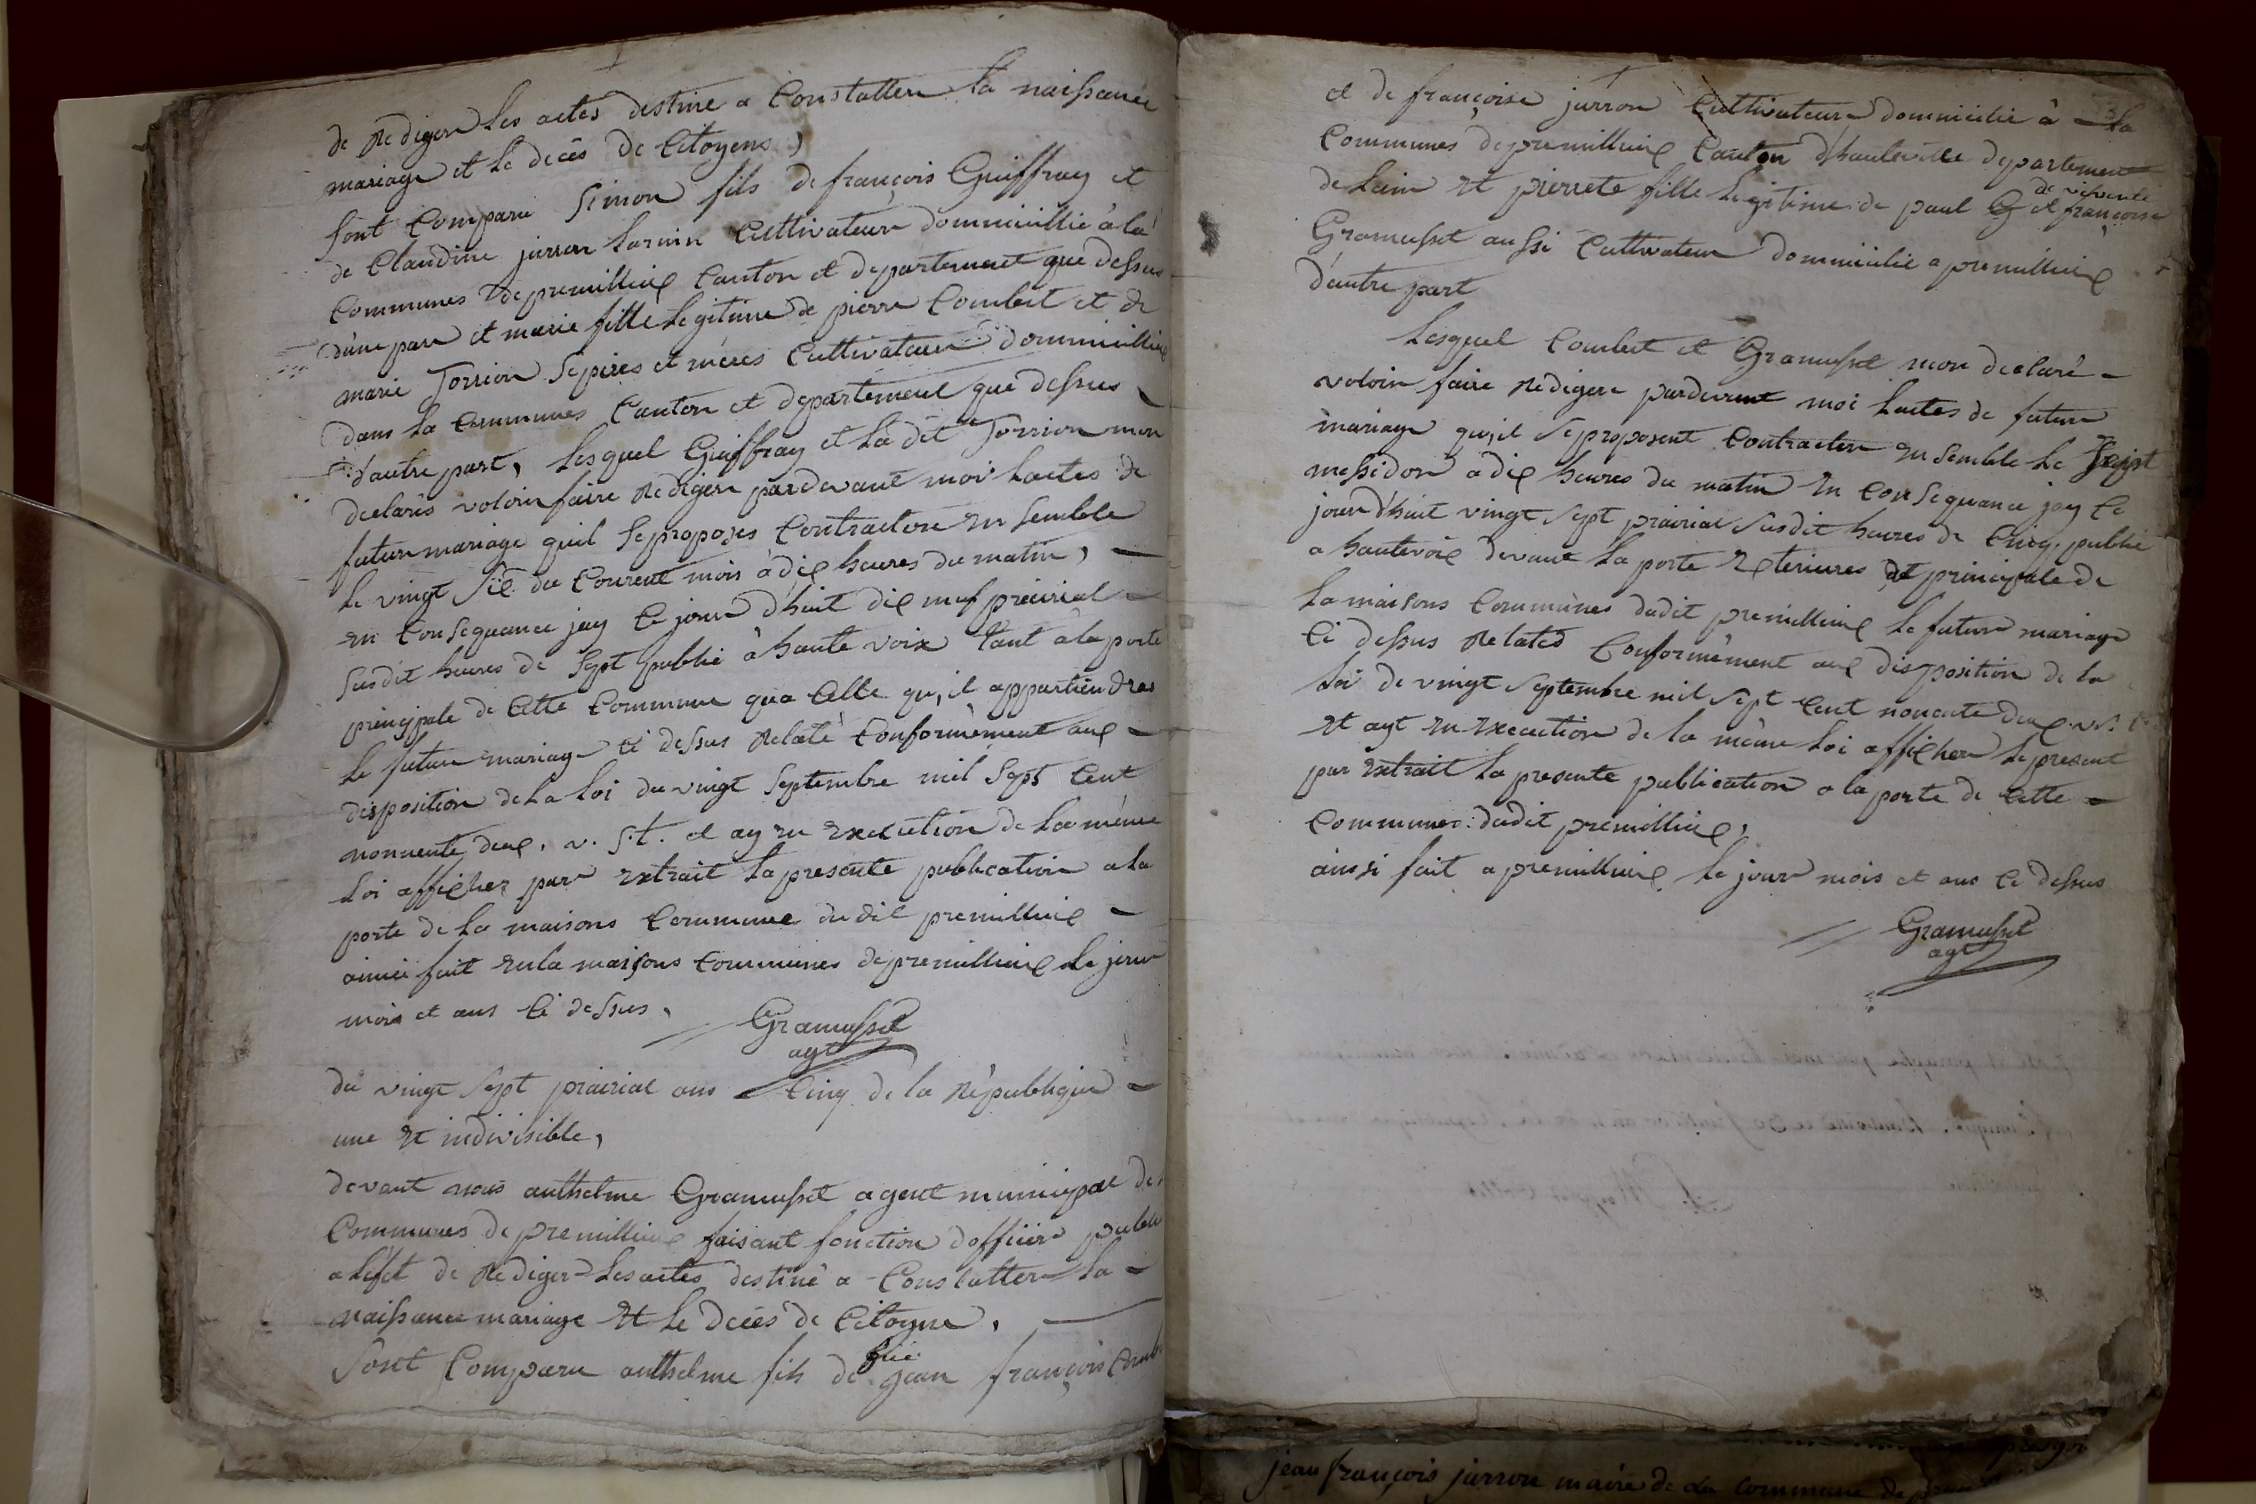 de Rediger les actes destine a Constatter la naissance
mariage et le deces de Citoyens,
sont Comparu Simon fils de françois Guiffray et
de Claudine jurron Cultivateur dommicillié à la
Communes de premillieux Canton et departement que dessus
d'une par et marie fille legitime de pierre Combet et de
marie Jorrion Sepères et mères Cultivateur dommicillié
dans la Communes Canton et departement que dessus
d'autre part, lesquel Guiffray et la dit Jorrion mon
declarés voloir faire Rediger pardevant moi lactes de
futur mariage quil Se proposes Contractere en semble
le vingt Six du Courent mois à dix heures du matin,
en Consequance jay Ce jour d'huit dix neuf preirial
susdit heures de sept publié à haute voix tant a la porte
principale de Cette Commune qua Celle qu,il appartiendras
le futur mariage Ci dessus Relaté Conformèment aux
disposition de la loi du vingt Septembre mil Sept Cent
nonuente deux, v. S.t. et ay en execution de la même
loi afficher par extrait la presente publication a la
porte de la maisons Commune du dit premillieux
ainci fait en la maisons Communes de premillieux le jour
mois et ans Ci dessus,
Gramusset
agt
du vingt sept prairial ans Cinq de la République
une et indivisible,
devant nous anthelme Gramusset agent municipal des
Communes de premillieux faisant fonction d'officier public
a lefet de Rediger les actes destiné a Constatter la
naissance mariage et le decés de Citoyne,
Sont Comparu anthelme fils de feu jean françois Combet
et de françoise jurron Cultivateur dommicilié à la
Communes de premillieux Canton d'hauteville departement
de lain et pierrete fille legitime de paul et françoise
Gramusset aussi Cultivateur dommicilié a premillieux
d'autre part
Lesquel Combet et Gramusset mon declaré
voloir faire Rediger pardevent moi lactes de futur
mariage qu,il Se proposent Contracter en semble le Sept
messidor a dix heures du matin en Consequance jay Ce
jour d'huit vingt sept prairial susdit heures de Cinq publié
a hautevoix devant la porte exterieures et principale de
la maisons Communes dudit premillieux le futur mariage
Ci dessus Relatés Conformèment aux disposition de la
loi de vingt Septembre mil Sept Cent nonente deux v.S.
et ayt en execution de la même loi afficher le present
par extrait la presente publication a la porte de Cette
Communes dudit premillieux,
ainsi fait a premillieux le jour mois et ans Ci dessus
Gramusset
agt
jean françois jurron maire de la Commune de